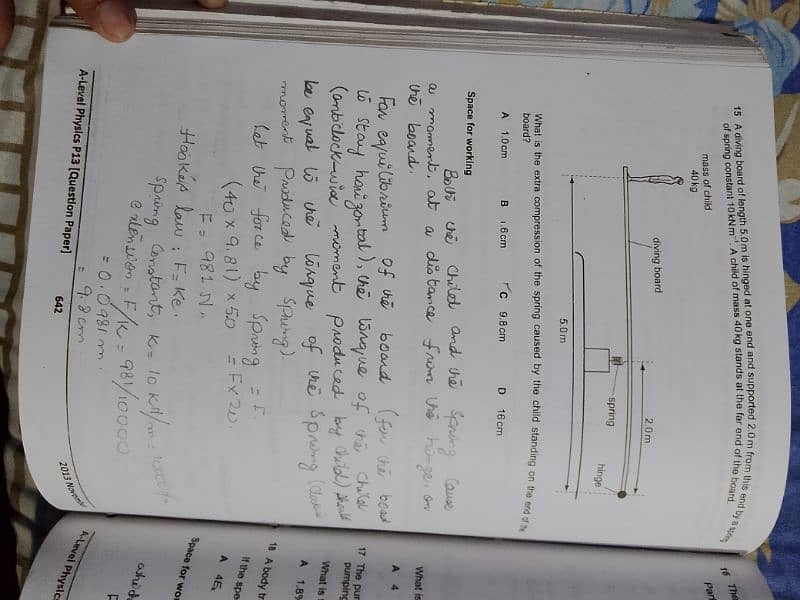 15 A diving board of length 5.0 m is hinged at one end and supported 2.0 m from this end by a spring
of spring constant 10 kN m⁻¹. A child of mass 40 kg stands at the far end of the board.
mass of child
40 kg
diving board
2.0 m
hinge
spring
5.0 m
What is the extra compression of the spring caused by the child standing on the end of the
board?
A 1.0 cm B 1.6 cm C 9.8 cm D 16 cm
Space for working
Both the child and the spring cause
a moment, at a distance from the hinge, on
the board.
For equilibrium of the board (for the board
to stay horizontal), the torque of the child
(anticlockwise moment produced by child) should
be equal to the torque of the spring
moment produced by spring).
Let the force by spring = F.
(40 x 9.81) x 50 = F x 20.
F = 981 N.
Hooke's law : F = ke.
Spring constant, k = 10 kN/m =
extension = F/k = 981/10000
= 0.0981 m.
= 9.8 cm
A-Level Physics P13 [Question Paper] 642 2013 November
16 The
What is
A 4
17 The pur
pumping
What is
A 1.89
18 A body
If the spe
A
Space for
which
A-Level Physics